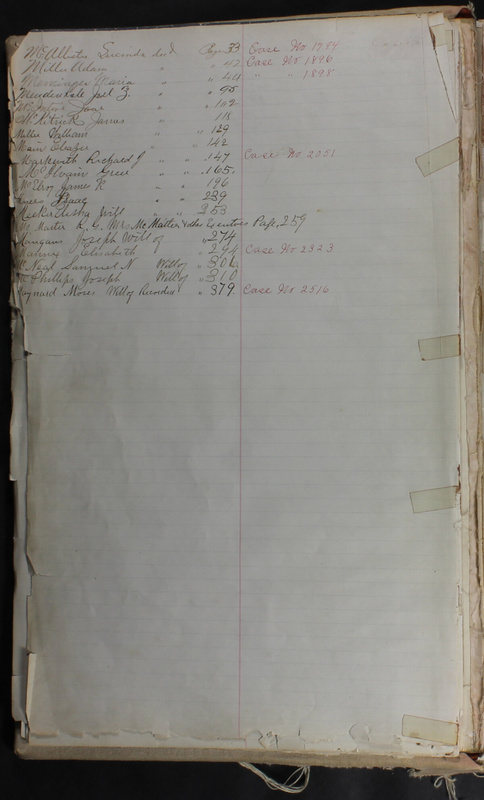 McAllister Lucinda decd Page 33 Case No 1794
Miller Adam " " 42 Case No 1896
Meminger Maria " " 44 " " 1898
Mendenhall " " 95
Jane " " 102
McKitrick James " 118
Millie William " " 129
Main Eleazer " 142
Markwith Richard J " " 147 Case No 2051
McIlvain Greer " " 165
McElroy James K " 196
Myers Isaac " " 239
Meeker Elisha Will " " 253
McMaster R. G. Mrs McMaster & other Executors Page, 259
Mangans Joseph Will of " 274
Mahny Elisabeth " " 294 Case No 2323
Neal Samuel N Will of " 306
McPhillips Joseph Will of " 310
Maynard Moses Will of Recorded " 379 Case No 2516